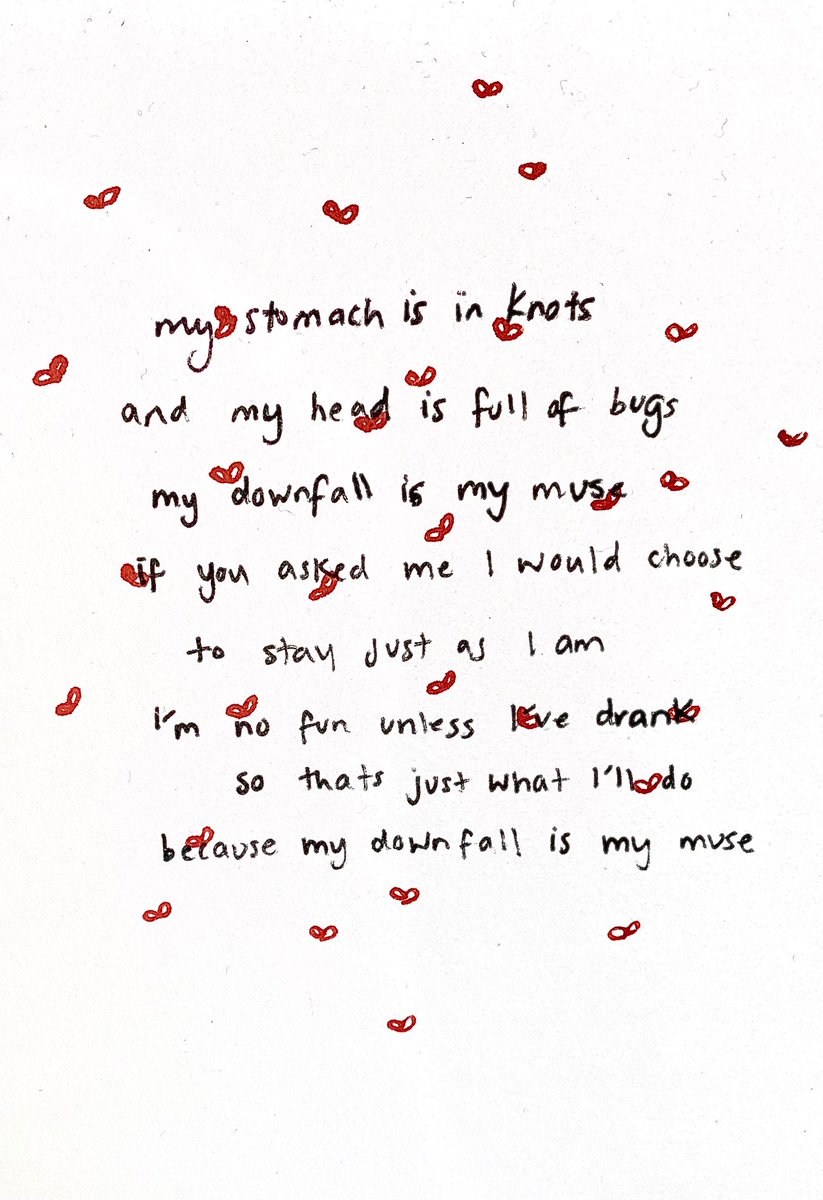 my stomach is in knots
and my head is full of bugs
my downfall is my muse
if you asked me I would choose
to stay just as I am
I'm no fun unless I've drank
so thats just what I'll do
because my downfall is my muse